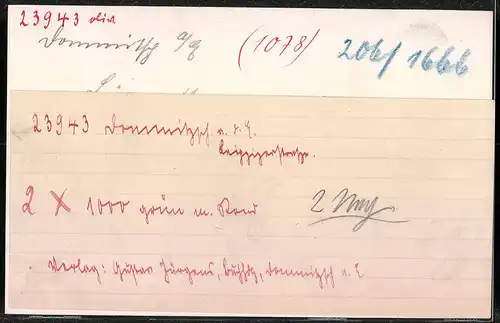 23943 oliv
Dommitzsch a/E
(1078)
206/1666
23943 Dommitzsch a. d. E.
Leipzigerstrasse.
2 x 1000 grün m. Rand
2 Neg
Verlag: Gustav Jürgens, Buchhdg, Dommitzsch a. E